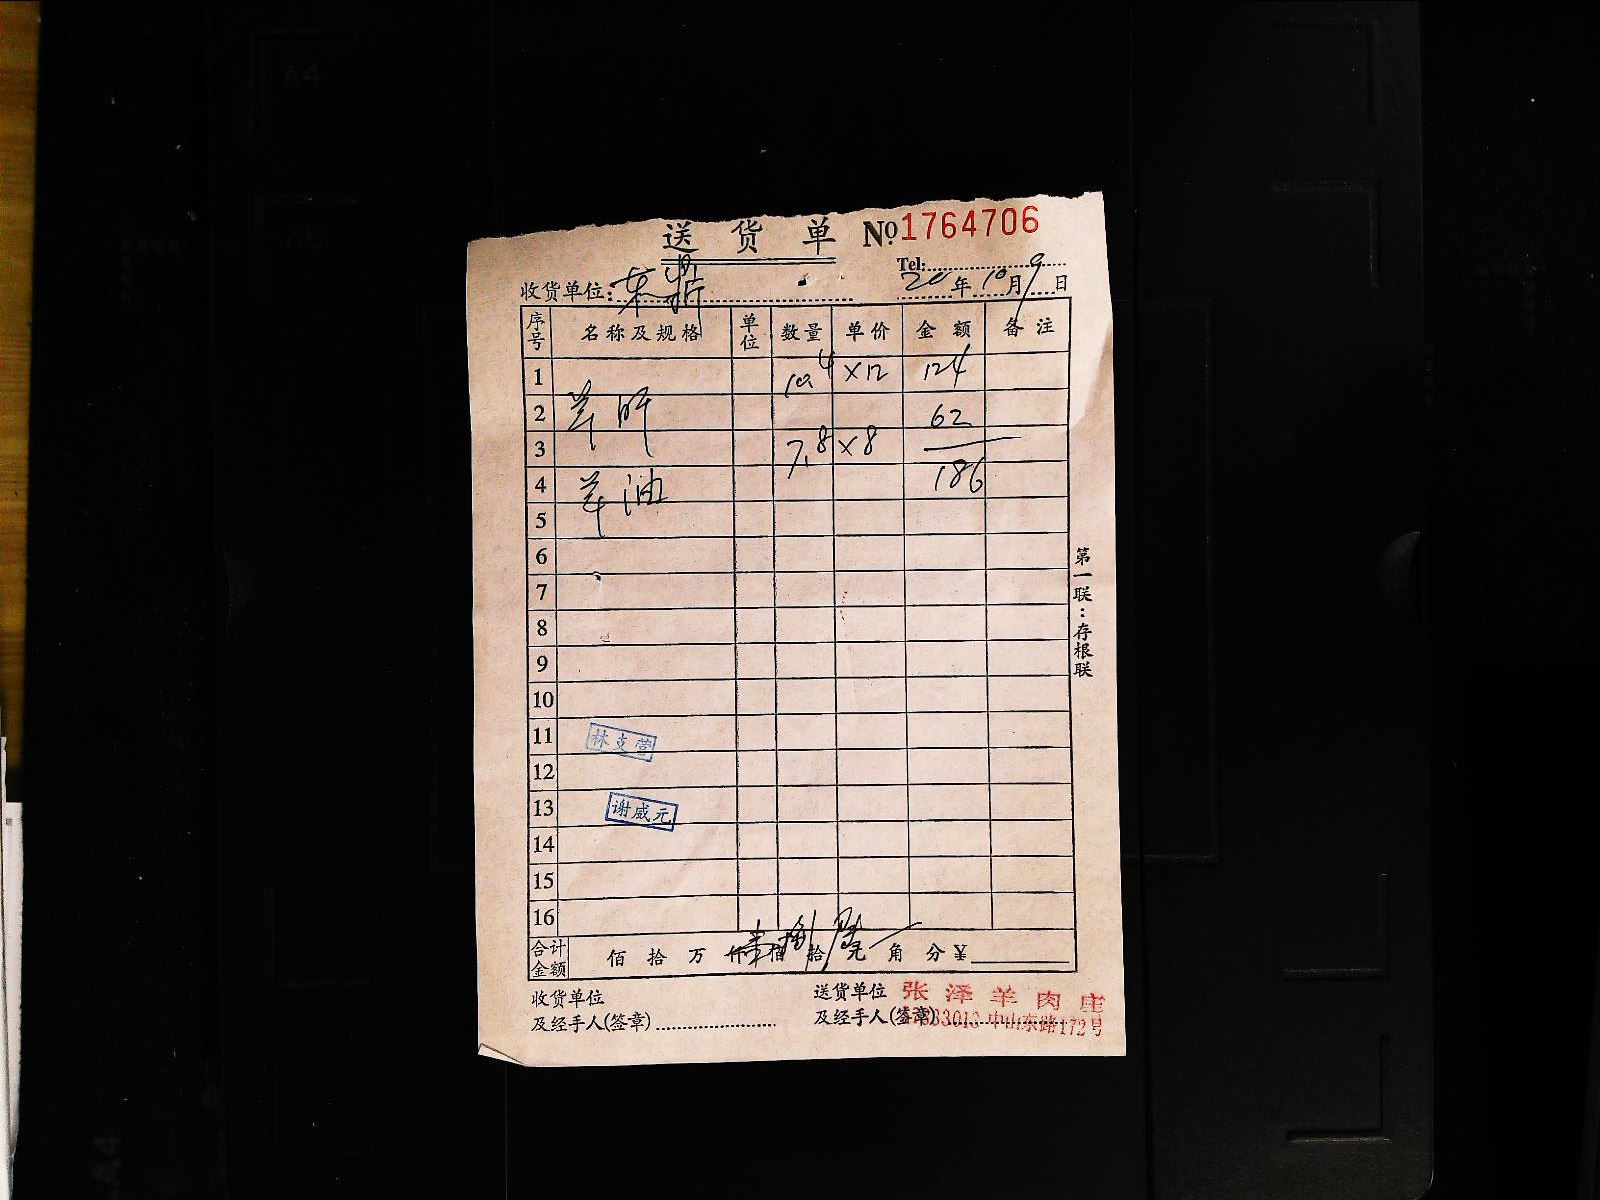 送货单 №1764706
Tel:
收货单位: 东 20年10月9日
序号 名称及规格 单位 数量 单价 金额 备注
1 10.4 ×12 124
2 羊肝 62
3 7.8 ×8
4 羊油 186
5
6
7
8
9
10
11 林支营
12
13 谢咸元
14
15
16
合计金额 佰拾万仟佰拾元角分¥
收货单位 送货单位 张泽羊肉庄
及经手人(签章) 及经手人(签章) 中山东路172号
第一联:存根联
A4
A5
A4